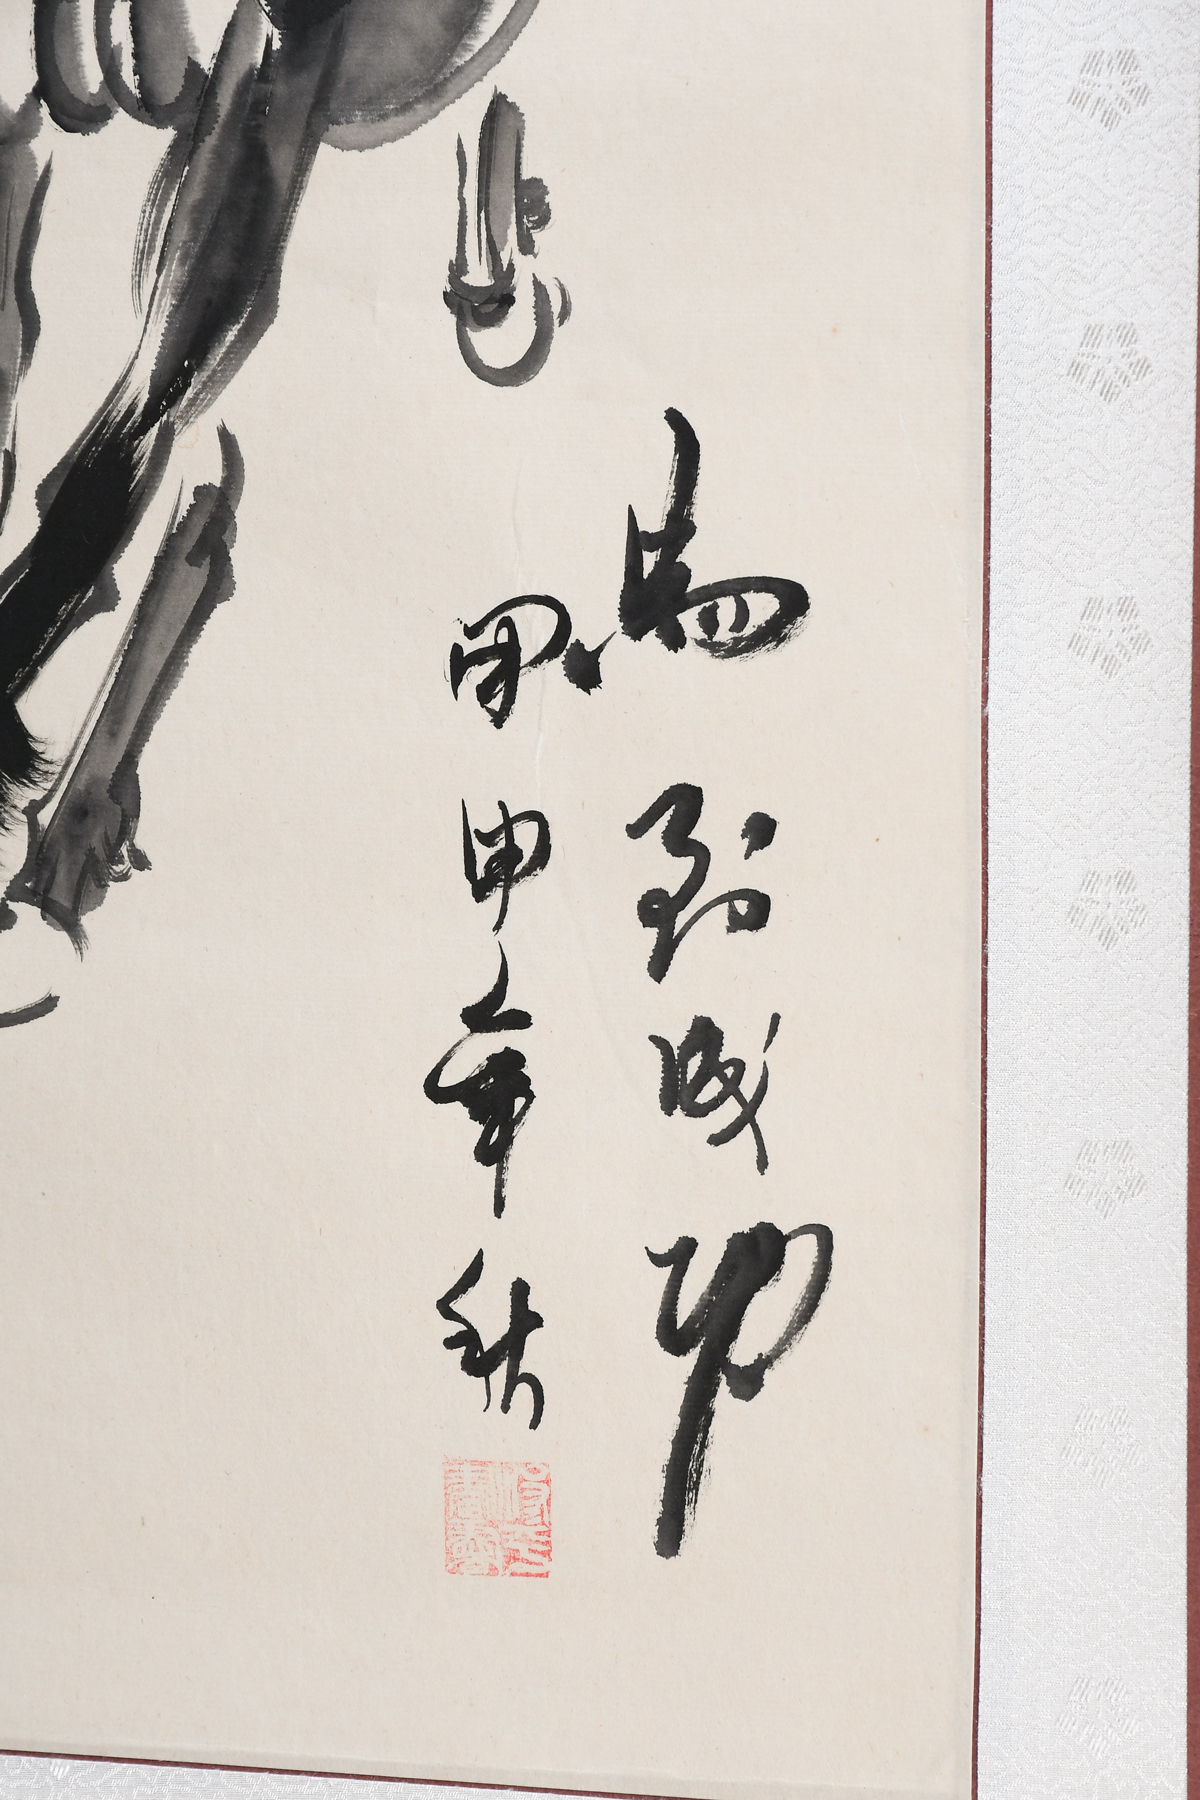 馬到成功
甲申年秋